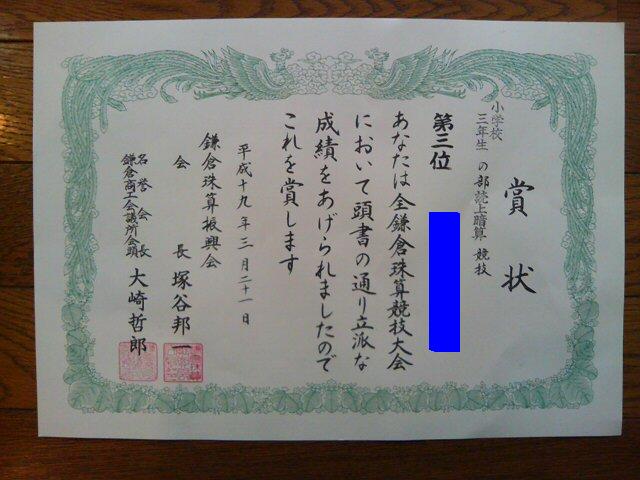 賞状
小学校三年生の部読上暗算競技
第三位
あなたは全鎌倉珠算競技大会
において頭書の通り立派な
成績をあげられましたので
これを賞します
平成十九年三月二十一日
鎌倉珠算振興会
会長 塚谷邦一
名誉会長
鎌倉商工会議所会頭 大崎哲郎